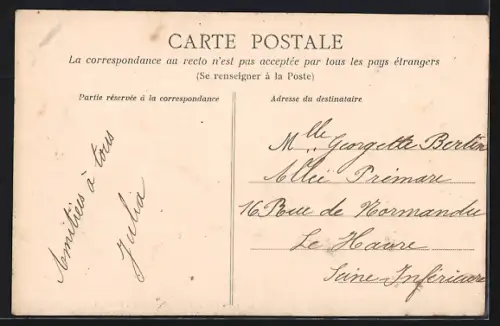 CARTE POSTALE
La correspondance au recto n'est pas acceptée par tous les pays étrangers
(Se renseigner à la Poste)
Partie réservée à la correspondance
Amitiées à tous
Julia
Adresse du destinataire
Mlle Georgette Bertin
16 Rue de Normandie
Le Havre
Seine Inférieure